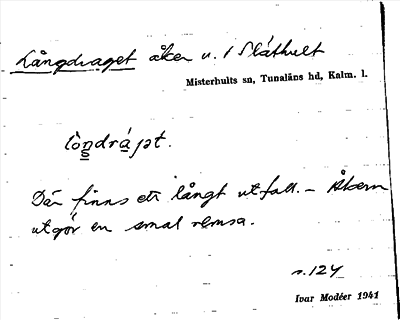 Långdraget åker u. 1 Slåthult
Misterhults sn, Tunaläns hd, Kalm. l.
lòndrápt.
Där finns ett långt utfall. – Åkern
utgör en smal remsa.
s. 124
Ivar Modéer 1941